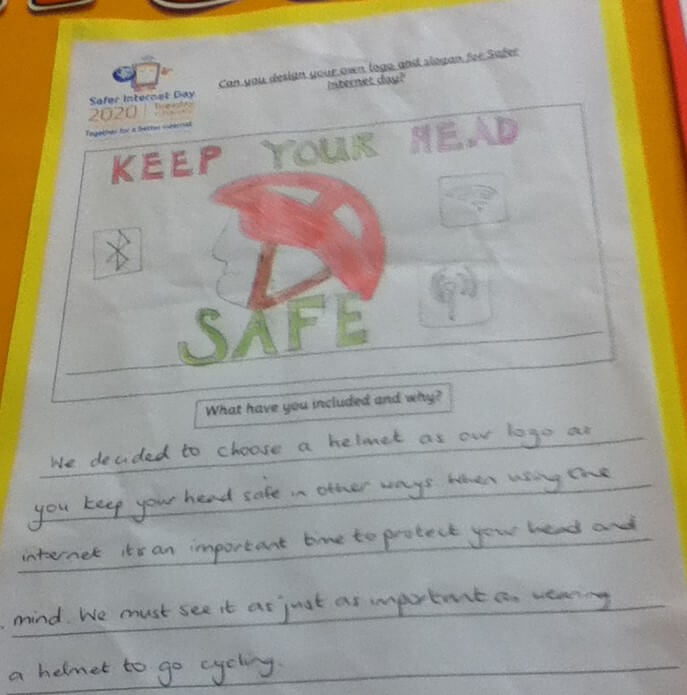 Can you design your own logo and slogan for Safer
Internet day?
Safer Internet Day
2020 Tuesday
Together for a better internet
KEEP YOUR HEAD
SAFE
What have you included and why?
We decided to choose a helmet as our logo as
you keep your head safe in other ways when using the
internet its an important time to protect your head and
mind. We must see it as just as important as wearing
a helmet to go cycling.